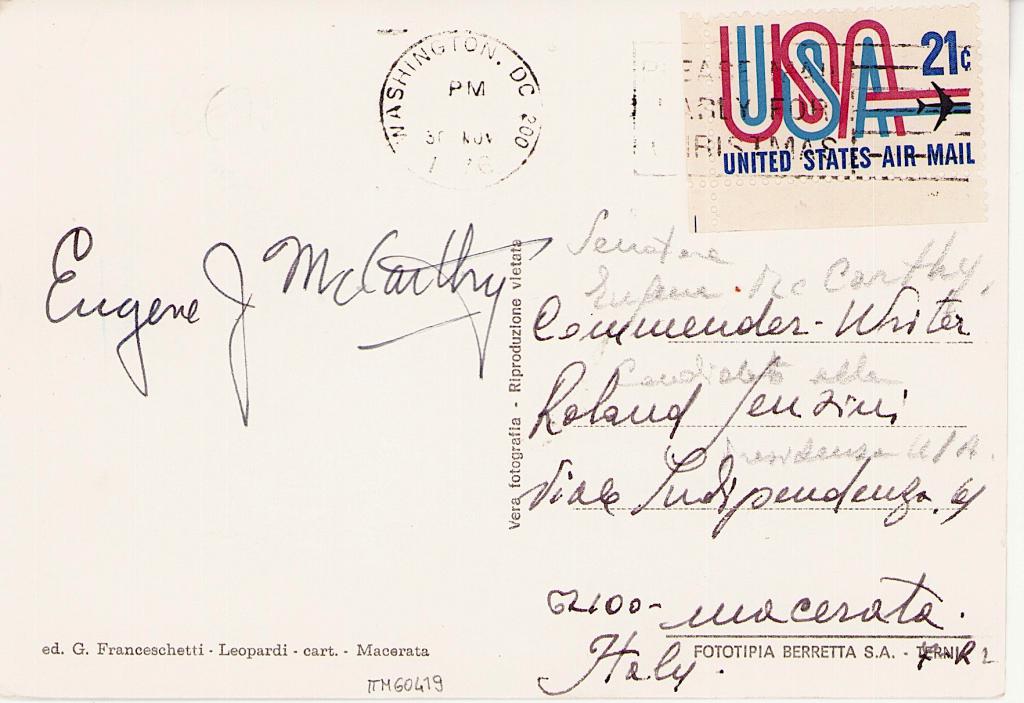 WASHINGTON, DC 200
PM
30 NOV
PLEASE MAIL
EARLY FOR
CHRISTMAS!
USA 21¢
UNITED STATES AIR MAIL
Eugene J McCarthy
Senatore
Eugene Mc Carthy,
Commender-Writer
Candidato alla
Roland Jenzini
Presidenza USA.
Viale Indipendenza,
62100- macerata.
Italy.
Vera fotografia - Riproduzione vietata
ed. G. Franceschetti - Leopardi - cart. - Macerata
FOTOTIPIA BERRETTA S.A. - TERNI
ITM60419